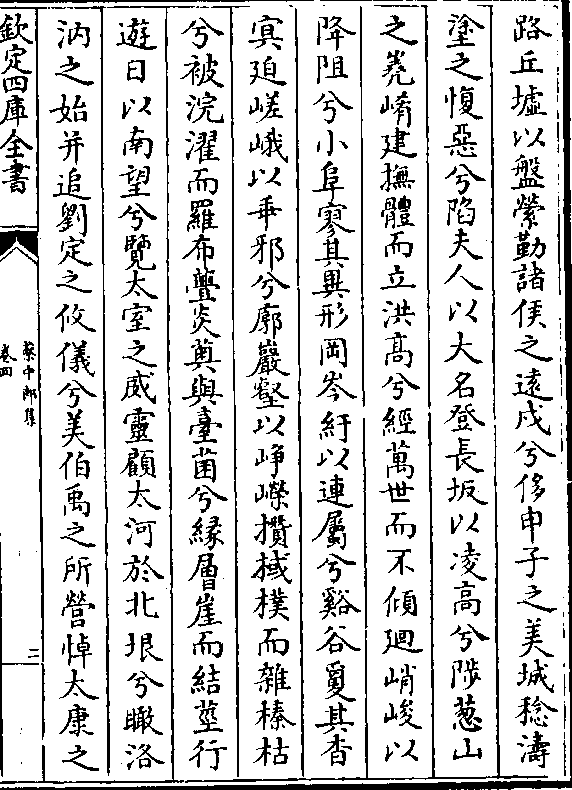 路丘墟以盤縈勤諸侯之遠戍兮侈申子之美城稔濤
塗之愎惡兮陷夫人以大名登長坂以凌高兮陟葱山
之嶤崤建撫體而立洪高兮經萬世而不傾迴峭峻以
降阻兮小阜寥其異形岡岑紆以連屬兮谿谷夐其杳
㝠廹嵯峨以乖邪兮廓巖壑以崢嶸攢棫樸而雜榛枯
兮被浣濯而羅布虋菼薁與臺菌兮縁層崖而結莖行
遊目以南望兮覽太室之威靈顧太河於北垠兮瞰洛
汭之始并追劉定之攸儀兮美伯禹之所營悼太康之
欽定四庫全書
蔡中郎集
卷四
二